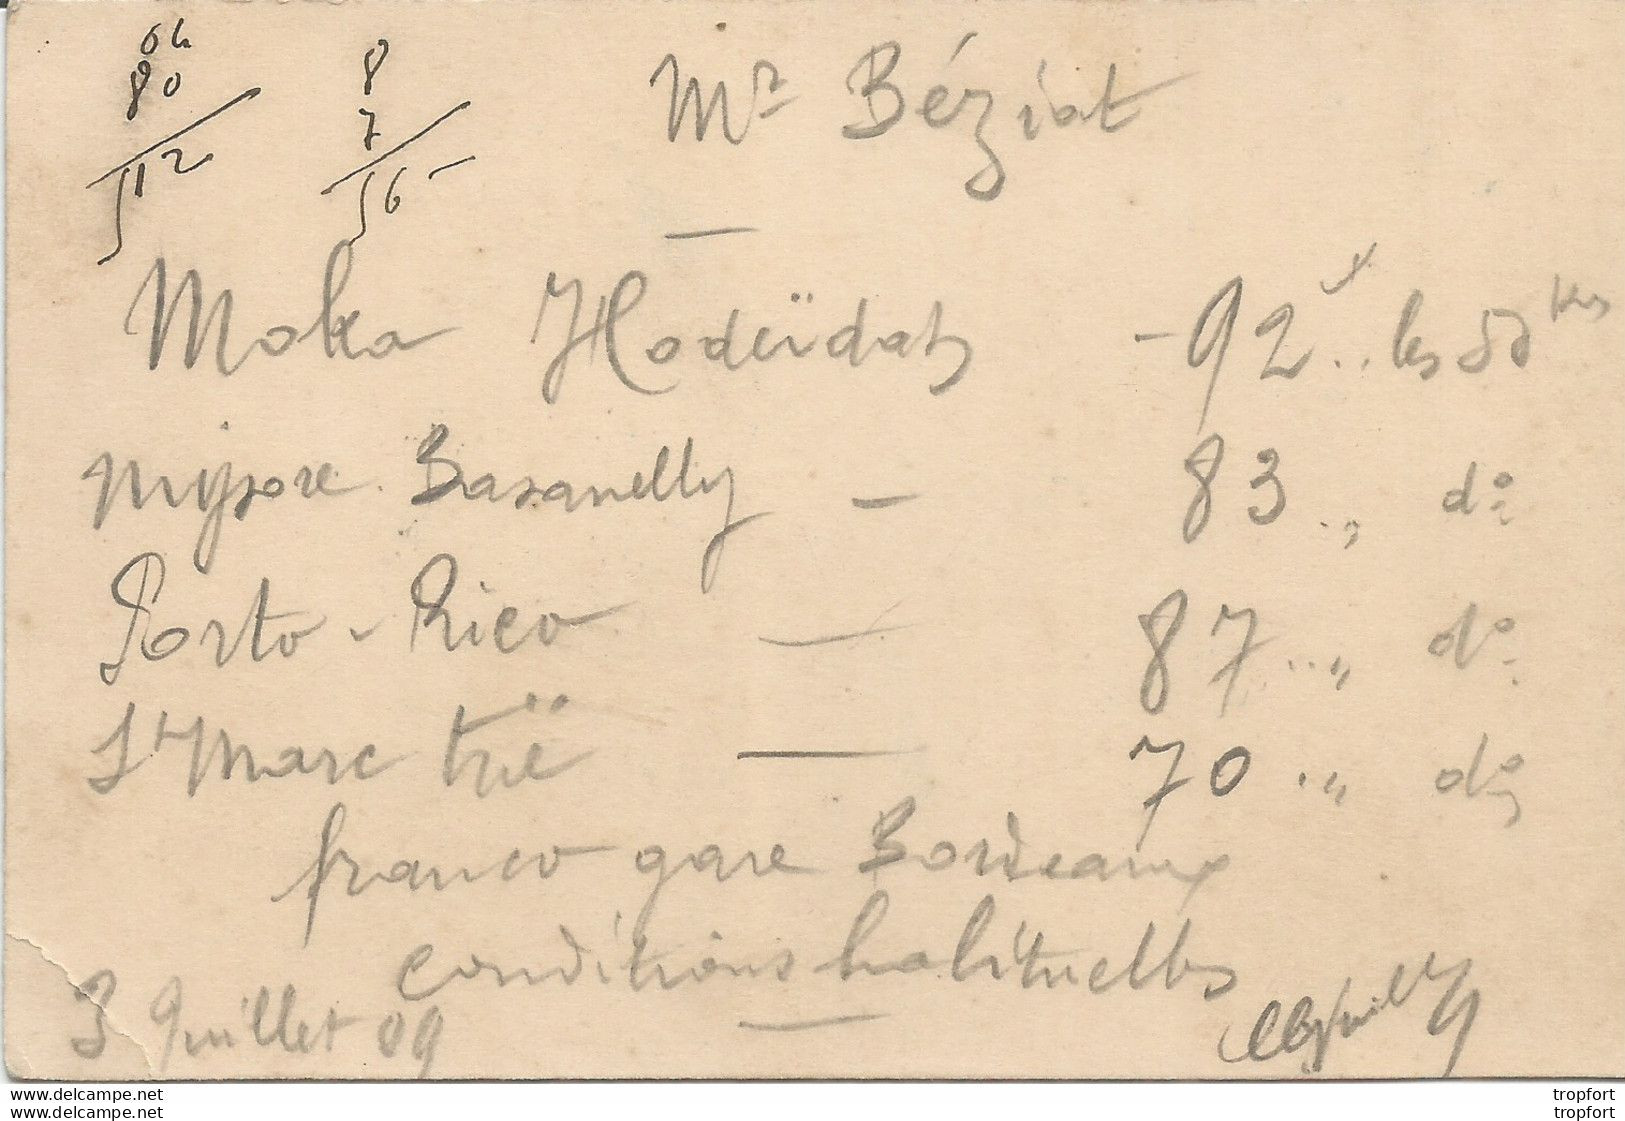 80 8
7
512 56
Mr Béziat
Moka Hodeïdah - 92 .. les 50 kos
Mysore Bazanelly - 83 .,, do
Porto-Rico — 87 ..,, do
St Marc trié — 70 .,, do
franco gare Bordeaux
conditions habituelles
3 Juillet 09
www.delcampe.net tropfort
www.delcampe.net tropfort